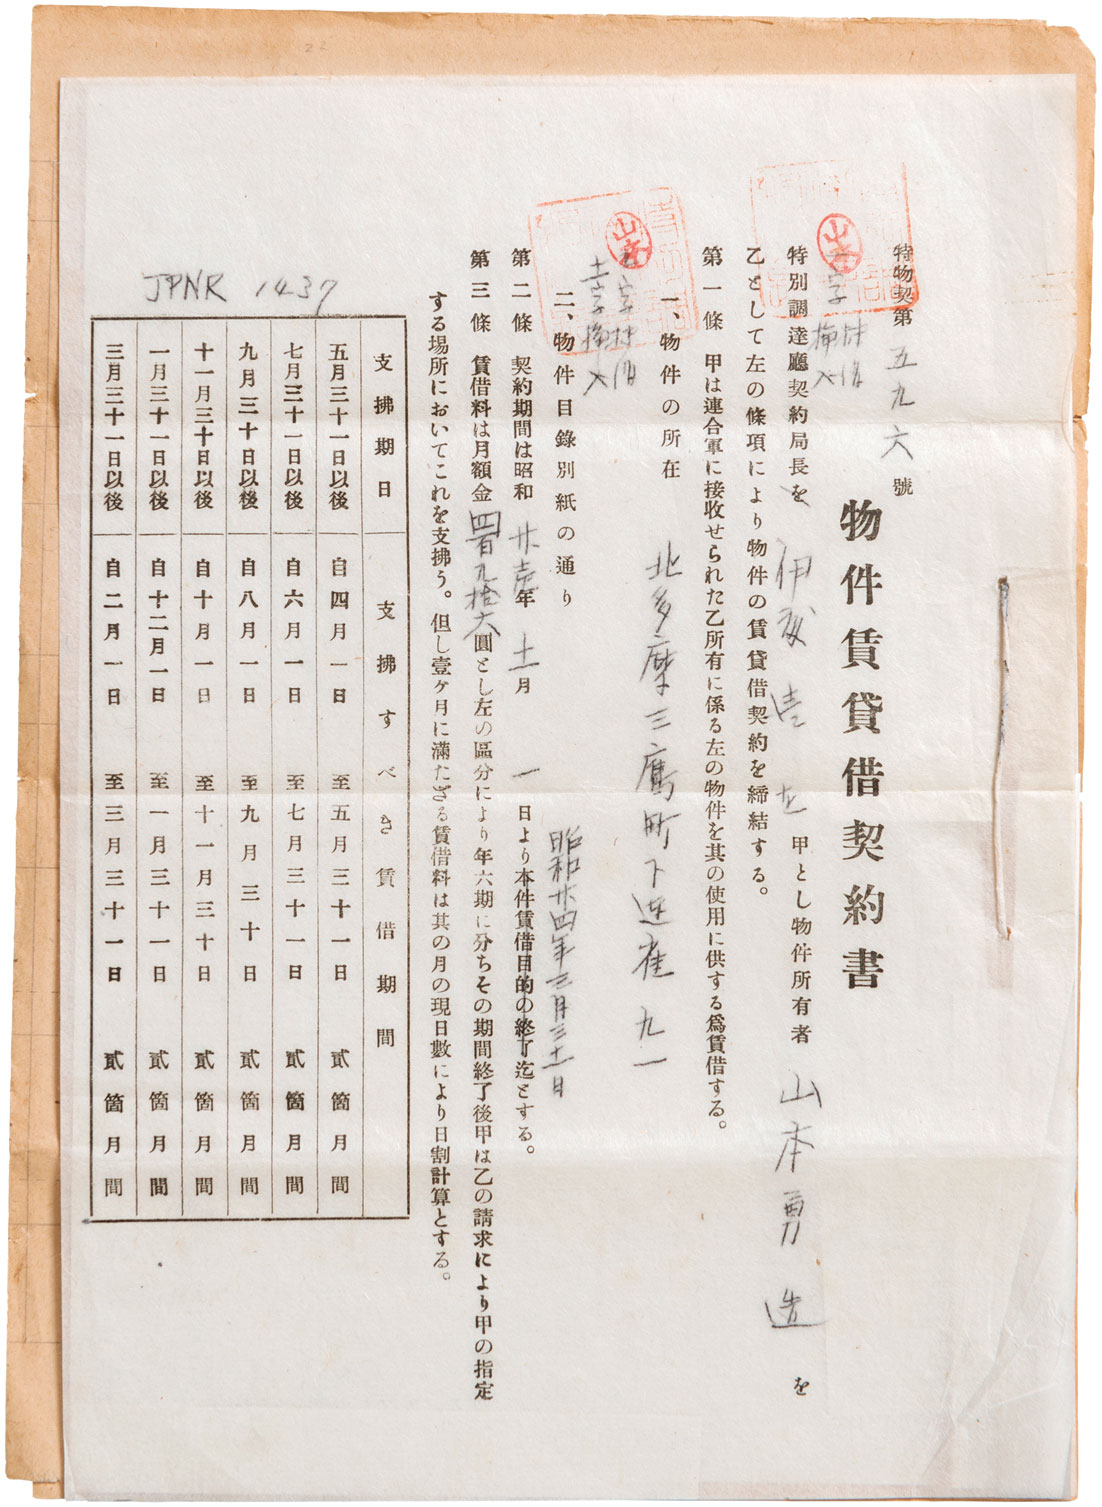 特物契第 五九六 號
物件賃貸借契約書
特別調達廳契約局長を 伊 を 甲とし物件所有者 山本勇造 を
乙として左の條項により物件の賃貸借契約を締結する。
六字 挿入
第一條 甲は連合軍に接收せられた乙所有に係る左の物件を其の使用に供する爲賃借する。
一、物件の所在 北多摩三鷹町下連雀九一
二、物件目錄別紙の通り
字 挿入
昭和廿四年三月三十一日
第二條 契約期間は昭和 廿壱 年 十一 月 一 日より本件賃借目的の終了迄とする。
第三條 賃借料は月額金 四百九拾六 圓とし左の區分により年六期に分ちその期間終了後甲は乙の請求により甲の指定
する場所においてこれを支拂う。但し壹ヶ月に滿たざる賃借料は其の月の現日數により日割計算とする。
JPNR 1437
支拂期日 支拂すべき賃借期間
五月三十一日以後 自四月一日 至五月三十一日 貳箇月間
七月三十一日以後 自六月一日 至七月三十一日 貳箇月間
九月三十日以後 自八月一日 至九月三十日 貳箇月間
十一月三十日以後 自十月一日 至十一月三十日 貳箇月間
一月三十一日以後 自十二月一日 至一月三十一日 貳箇月間
三月三十一日以後 自二月一日 至三月三十一日 貳箇月間
山本
山本